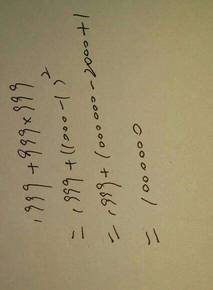 1999 + 999×999
= 1999 + (1000-1)²
= 1999 + 1000000 - 2000 + 1
= 1000000